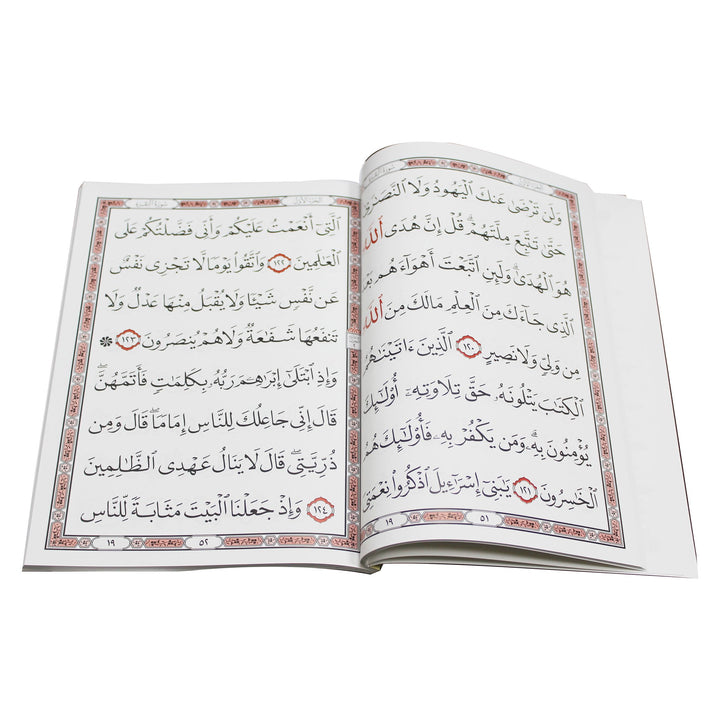 الجزء الأول
وَلَن تَرْضَىٰ عَنكَ ٱلْيَهُودُ وَلَا ٱلنَّصَٰرَىٰ
حَتَّىٰ تَتَّبِعَ مِلَّتَهُمْ ۗ قُلْ إِنَّ هُدَى ٱللَّهِ
هُوَ ٱلْهُدَىٰ ۗ وَلَئِنِ ٱتَّبَعْتَ أَهْوَآءَهُم بَعْدَ
ٱلَّذِى جَآءَكَ مِنَ ٱلْعِلْمِ مَا لَكَ مِنَ ٱللَّهِ
مِن وَلِىٍّ وَلَا نَصِيرٍ ١٢٠ ٱلَّذِينَ ءَاتَيْنَٰهُمُ
ٱلْكِتَٰبَ يَتْلُونَهُۥ حَقَّ تِلَاوَتِهِۦٓ أُو۟لَٰٓئِكَ
يُؤْمِنُونَ بِهِۦ ۗ وَمَن يَكْفُرْ بِهِۦ فَأُو۟لَٰٓئِكَ هُمُ
ٱلْخَٰسِرُونَ ١٢١ يَٰبَنِىٓ إِسْرَٰٓءِيلَ ٱذْكُرُوا۟ نِعْمَتِىَ
٥١ ١٩
سورة البقرة الجزء الأول
ٱلَّتِىٓ أَنْعَمْتُ عَلَيْكُمْ وَأَنِّى فَضَّلْتُكُمْ عَلَى
ٱلْعَٰلَمِينَ ١٢٢ وَٱتَّقُوا۟ يَوْمًا لَّا تَجْزِى نَفْسٌ
عَن نَّفْسٍ شَيْـًٔا وَلَا يُقْبَلُ مِنْهَا عَدْلٌ وَلَا
تَنفَعُهَا شَفَٰعَةٌ وَلَا هُمْ يُنصَرُونَ ١٢٣ ۞
وَإِذِ ٱبْتَلَىٰٓ إِبْرَٰهِـۧمَ رَبُّهُۥ بِكَلِمَٰتٍ فَأَتَمَّهُنَّ ۖ
قَالَ إِنِّى جَاعِلُكَ لِلنَّاسِ إِمَامًا ۖ قَالَ وَمِن
ذُرِّيَّتِى ۖ قَالَ لَا يَنَالُ عَهْدِى ٱلظَّٰلِمِينَ
١٢٤ وَإِذْ جَعَلْنَا ٱلْبَيْتَ مَثَابَةً لِّلنَّاسِ
٥٢ ١٩